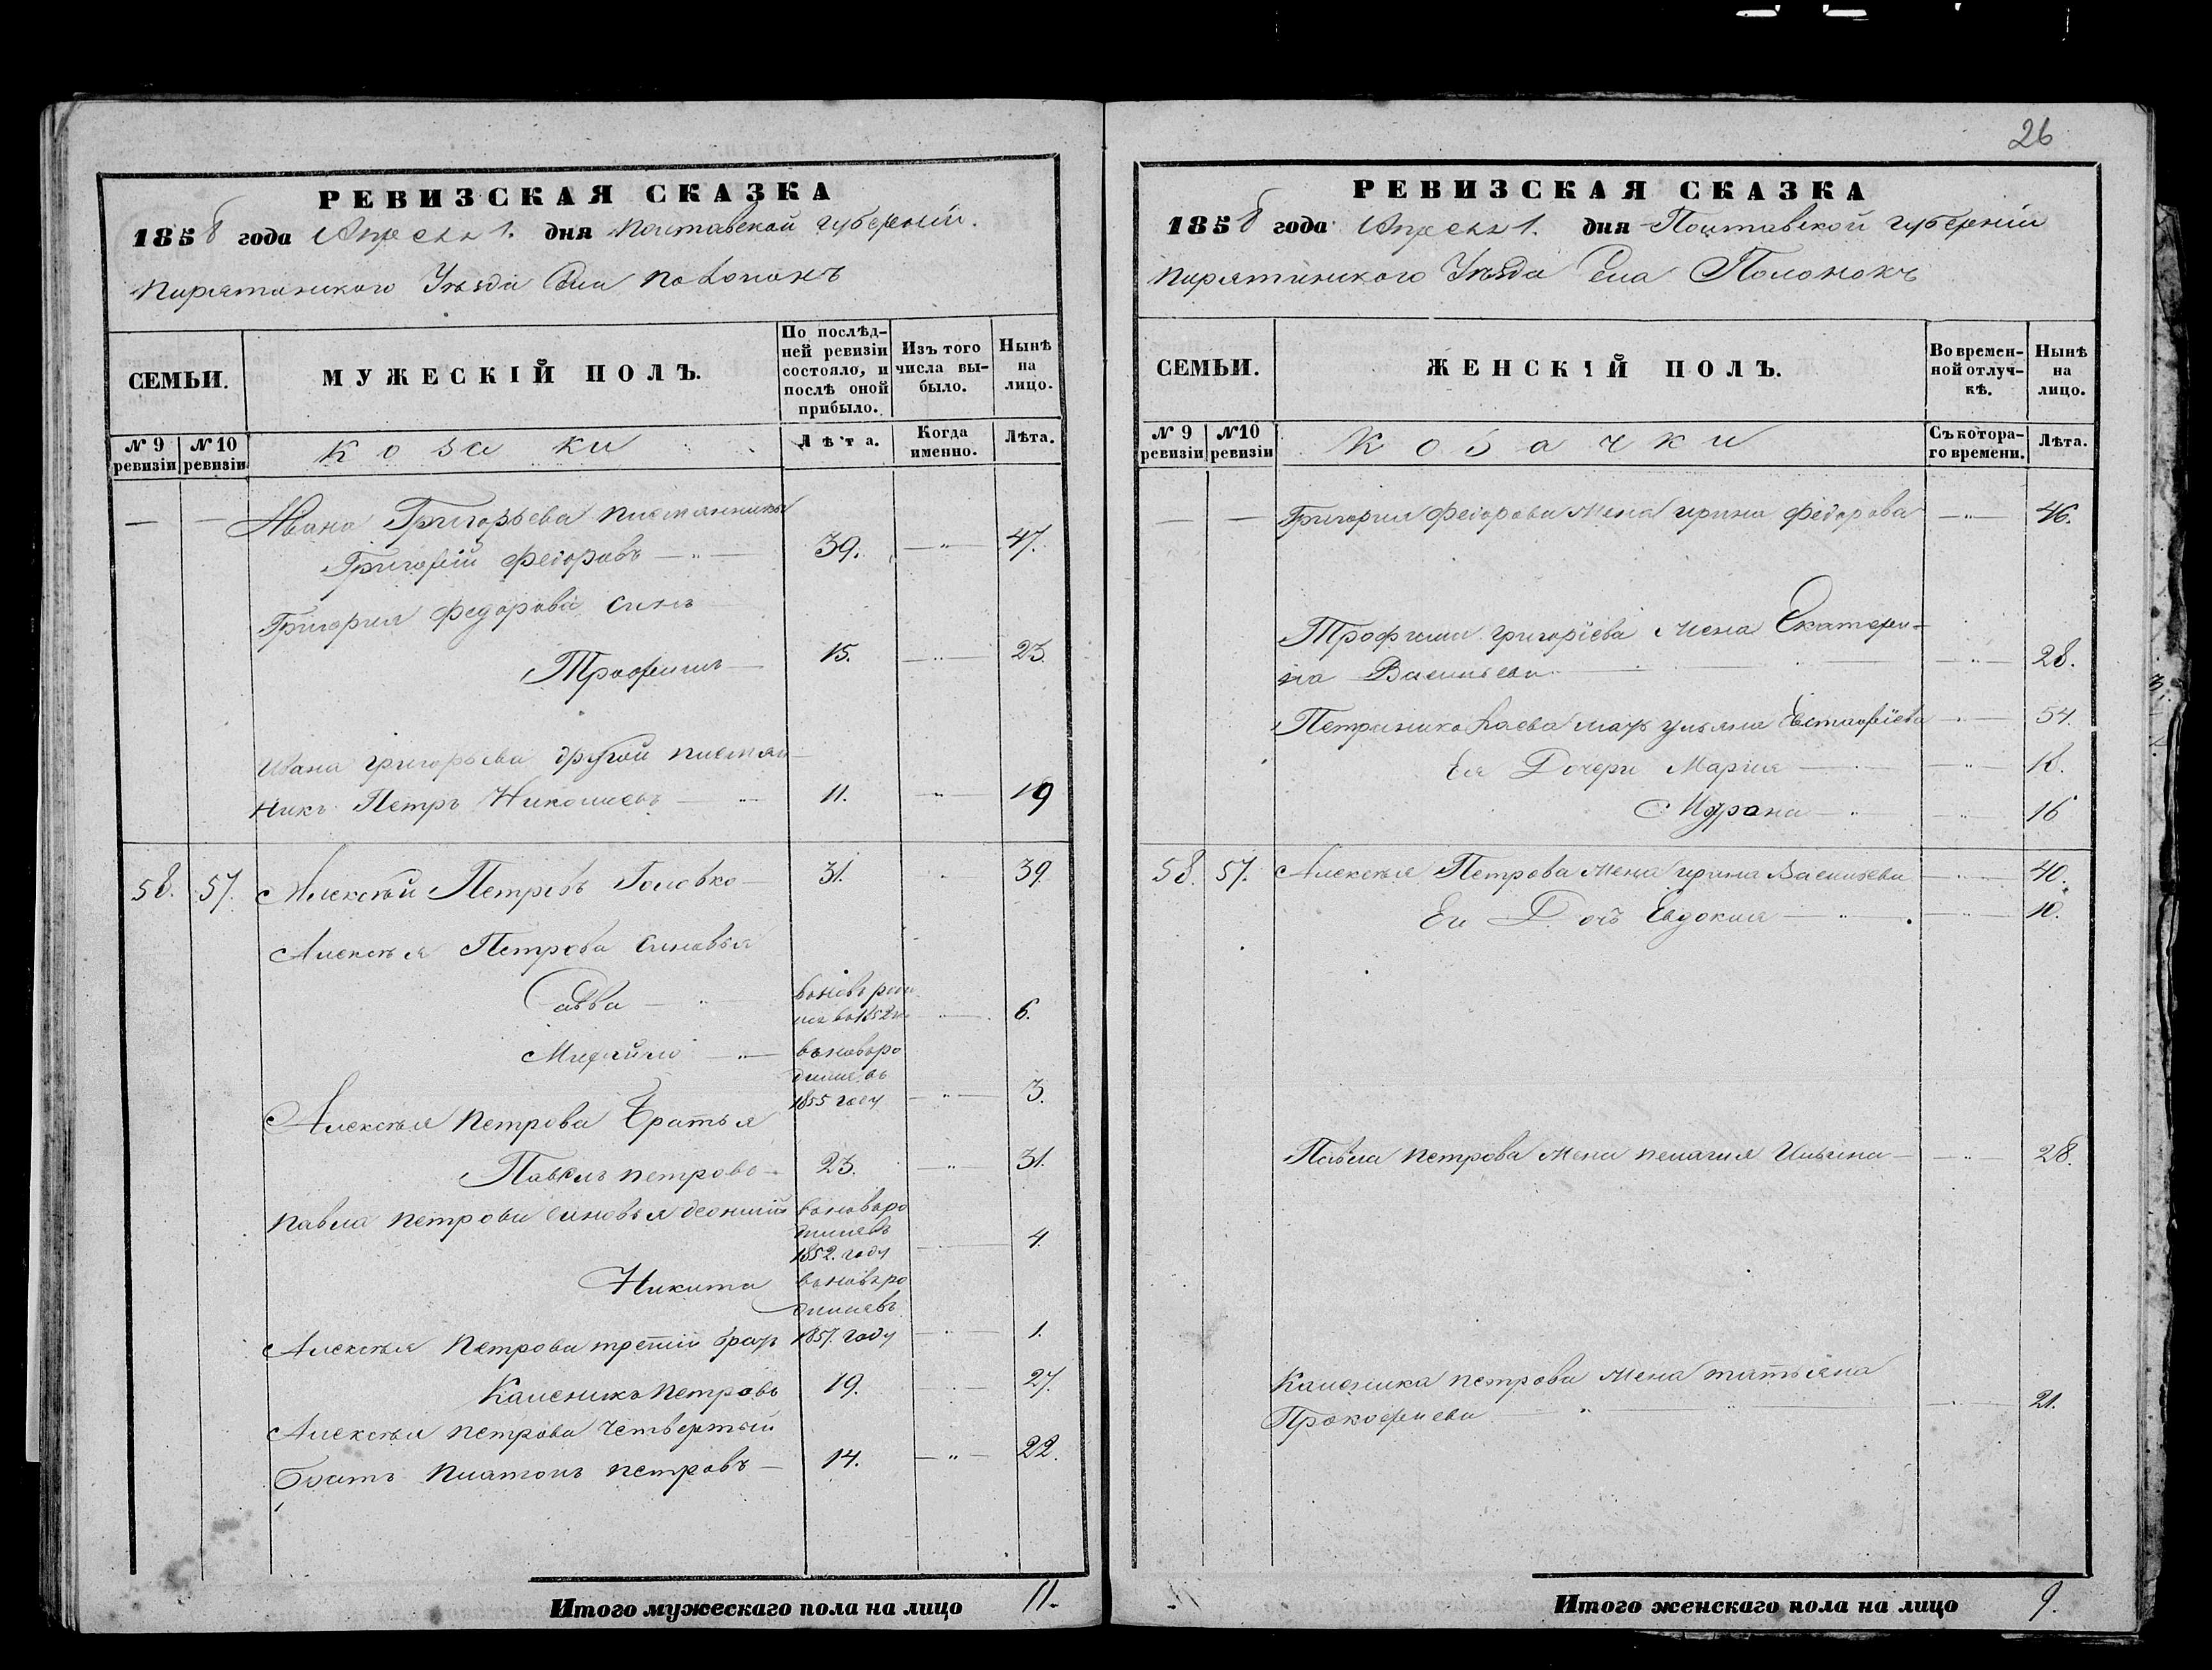 РЕВИЗСКАЯ СКАЗКА
1858 года Апреля 1. дня Полтавской губерніи.
Пирятинского Уезда Села Полонокъ
СЕМЬИ.
МУЖЕСКІЙ ПОЛЪ.
По послѣд-
ней ревизіи
состояло, и
послѣ оной
прибыло.
Изъ того
числа вы-
было.
Нынѣ
на
лицо.
№ 9
ревизіи
№ 10
ревизіи
козаки
Лѣта.
Когда
именно.
Лѣта.
Ивана Григорьева племянники
Григорій Федоровъ 39. 47.
Григория Федорова сынъ
Трофимъ 15. 23.
Ивана Григорьева другой племян-
никъ Петръ Николаевъ 11. 19
58. 57. Алексѣй Петровъ Головко 31. 39.
Алексѣя Петрова сыновья
Савва
6.
Михайло вновь ро
дился въ
1855 году 3.
Алексѣя Петрова Братья
Павелъ Петровъ 23. 31.
Павла Петрова сыновья вновь ро
дился въ
1852. году 4.
Никита вновь ро
дился въ
Алексѣя Петрова третій братъ 1857. году 1.
Каленикъ Петровъ 19. 27.
Алексѣя Петрова четвертый
братъ Платонъ Петровъ 14. 22.
Итого мужескаго пола на лицо 11.
26
РЕВИЗСКАЯ СКАЗКА
1858 года Апреля 1. дня Полтавской губерніи
Пирятинского Уезда Села Полонокъ
СЕМЬИ.
ЖЕНСКІЙ ПОЛЪ.
Во времен-
ной отлуч-
кѣ.
Нынѣ
на
лицо.
№ 9
ревизіи
№10
ревизіи
Козачки
Съ котора-
го времени.
Лѣта.
Григория Федорова жена Ирина Федорова 46.
Трофима Григоріева жена Екатери-
на Васильева 28.
Петра Николаева мать Ульяна Евстафіева 54.
Ея Дочери Марія 18.
16
58. 57. Алексѣя Петрова жена Ирина Васильева 40.
Ея Дочь Евдокия 10.
Павла Петрова жена Пелагия Ильина 28.
Каленика Петрова жена Татьяна
Прокофиева 21.
Итого женскаго пола на лицо 9.